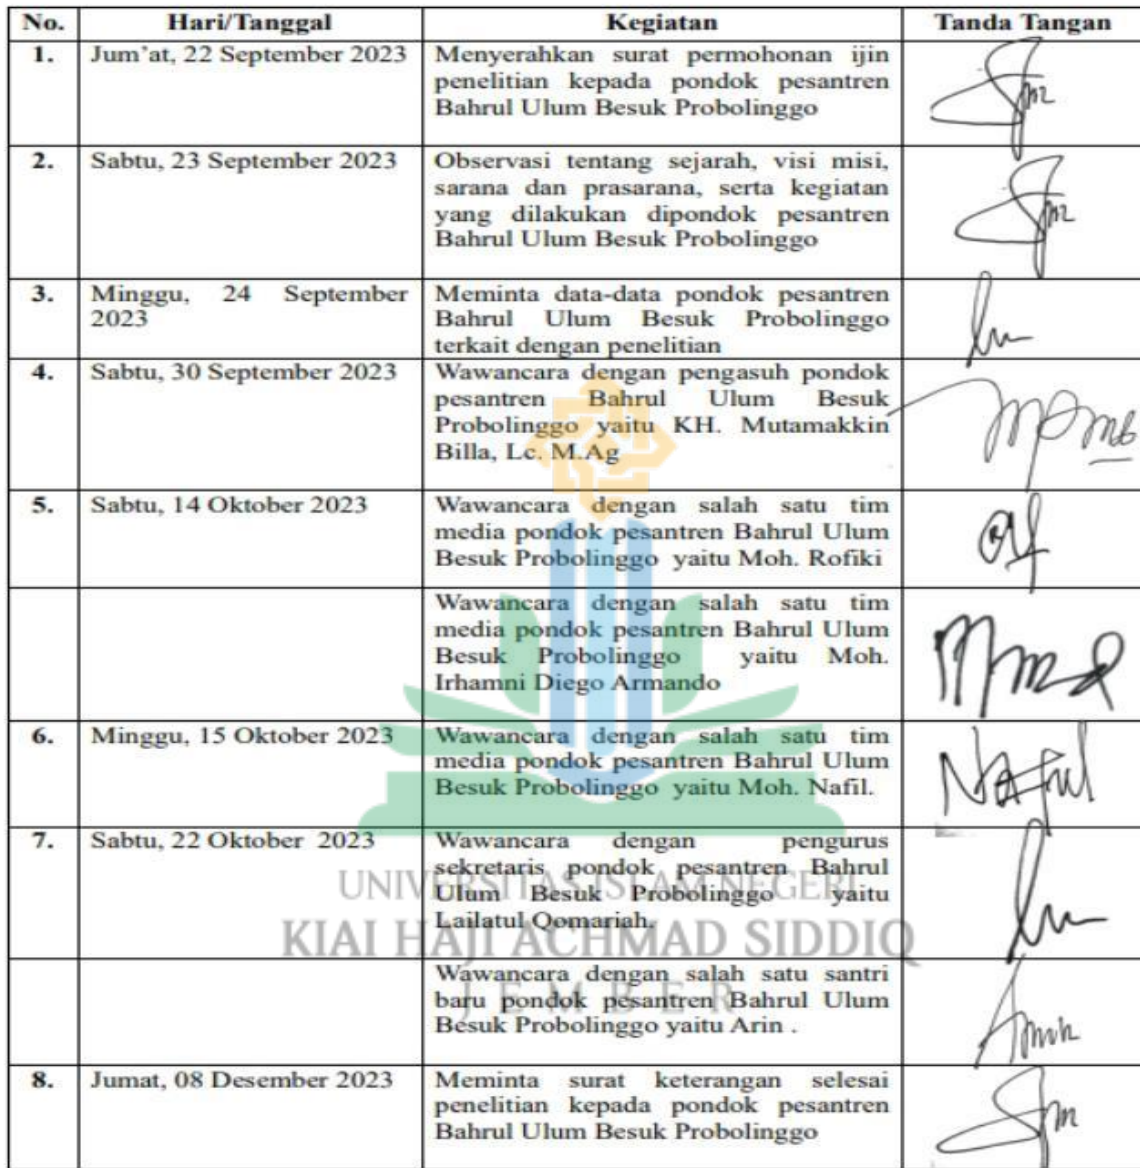 No. Hari/Tanggal Kegiatan Tanda Tangan
1. Jum'at, 22 September 2023 Menyerahkan surat permohonan ijin
penelitian kepada pondok pesantren
Bahrul Ulum Besuk Probolinggo
2. Sabtu, 23 September 2023 Observasi tentang sejarah, visi misi,
sarana dan prasarana, serta kegiatan
yang dilakukan dipondok pesantren
Bahrul Ulum Besuk Probolinggo
3. Minggu, 24 September Meminta data-data pondok pesantren
2023 Bahrul Ulum Besuk Probolinggo
terkait dengan penelitian
4. Sabtu, 30 September 2023 Wawancara dengan pengasuh pondok
pesantren Bahrul Ulum Besuk
Probolinggo yaitu KH. Mutamakkin
Billa, Lc. M.Ag
5. Sabtu, 14 Oktober 2023 Wawancara dengan salah satu tim
media pondok pesantren Bahrul Ulum
Besuk Probolinggo yaitu Moh. Rofiki
Wawancara dengan salah satu tim
media pondok pesantren Bahrul Ulum
Besuk Probolinggo yaitu Moh.
Irhamni Diego Armando
6. Minggu, 15 Oktober 2023 Wawancara dengan salah satu tim
media pondok pesantren Bahrul Ulum
Besuk Probolinggo yaitu Moh. Nafil.
7. Sabtu, 22 Oktober 2023 Wawancara dengan pengurus
sekretaris pondok pesantren Bahrul
Ulum Besuk Probolinggo yaitu
Lailatul Qomariah.
Wawancara dengan salah satu santri
baru pondok pesantren Bahrul Ulum
Besuk Probolinggo yaitu Arin .
8. Jumat, 08 Desember 2023 Meminta surat keterangan selesai
penelitian kepada pondok pesantren
Bahrul Ulum Besuk Probolinggo
UNIVERSITAS ISLAM NEGERI
KIAI HAJI ACHMAD SIDDIQ
JEMBER